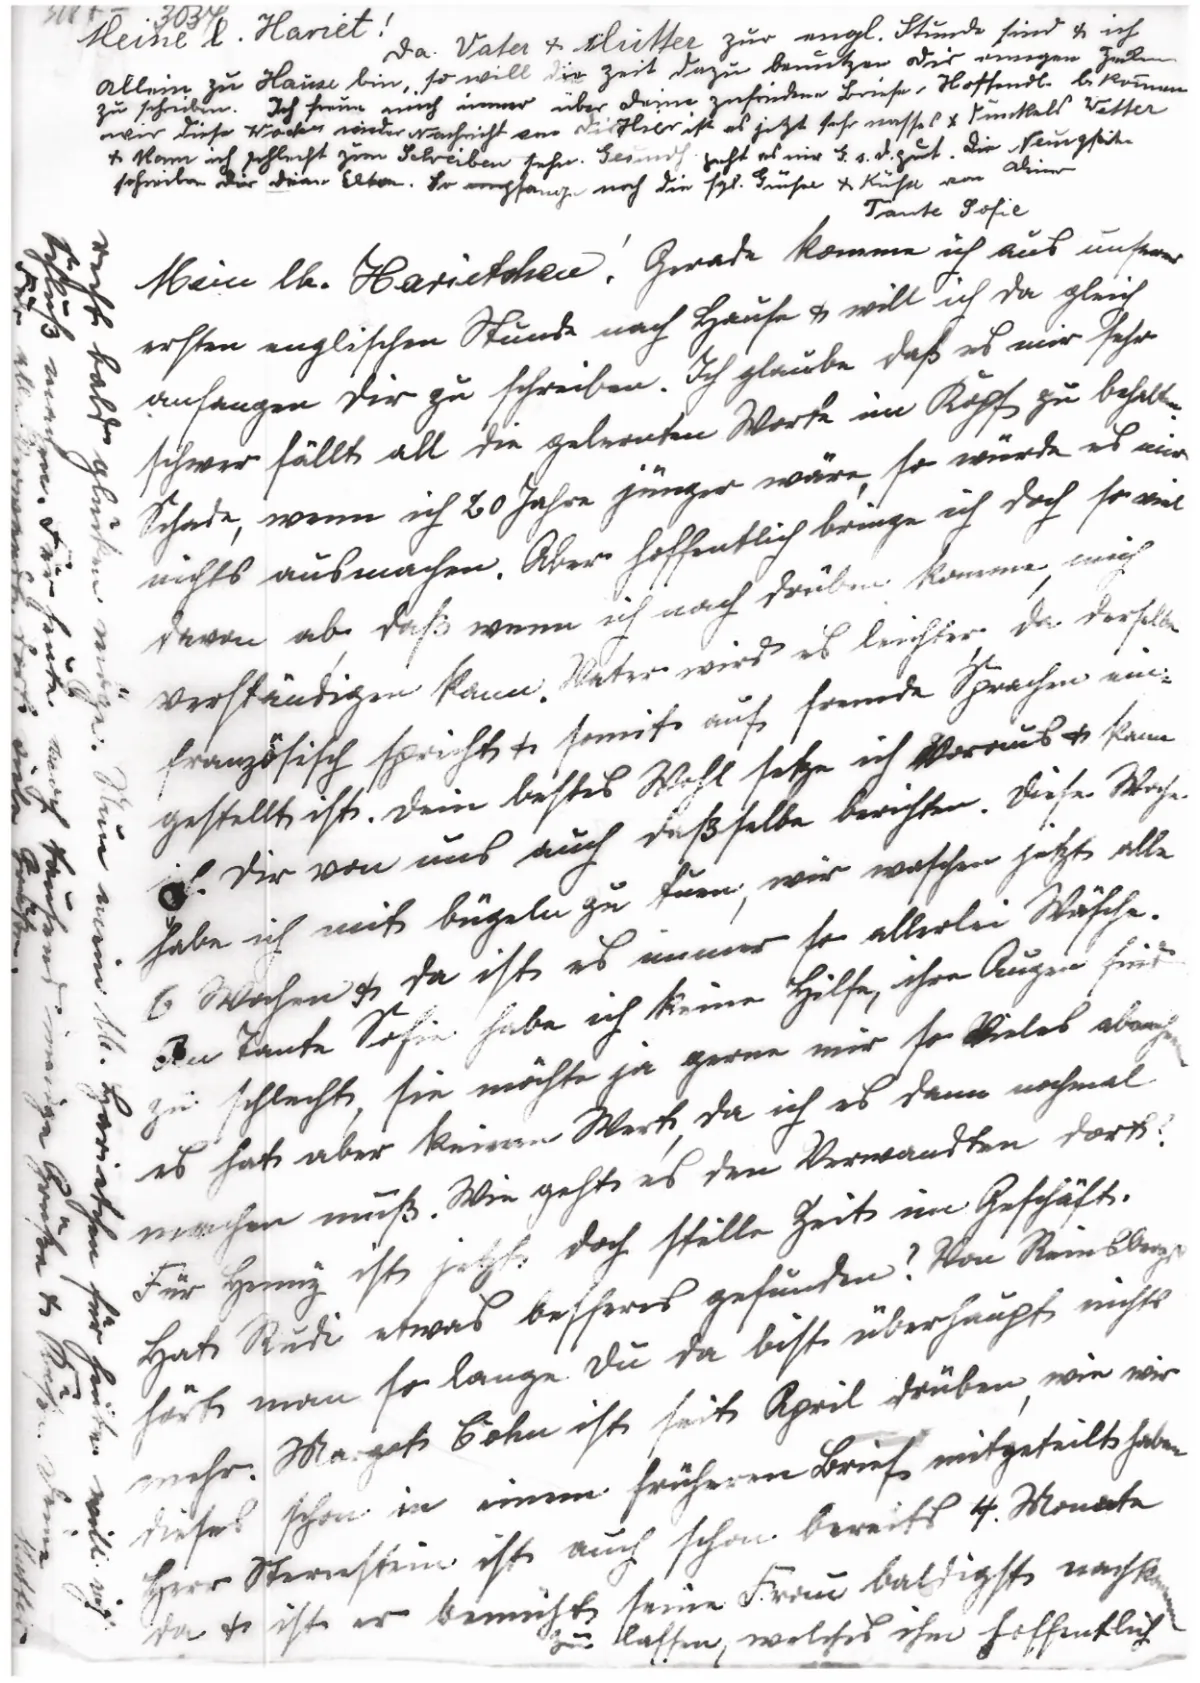 3034
Meine l. Hariet!
Da Vater & Mutter zur engl. Stunde sind & ich
allein zu Hause bin, so will die Zeit dazu benutzen Dir einigen Zeilen
zu schreiben. Ich freue mich immer über Deine zufriedene Briefe, Hoffendl. bekommen
wir diese Woche wieder Nachricht von Dir. Hier ist es jetzt sehr nasses & dunkels Wetter
& kann ich schlecht zum Schreiben sehn. Gesundh. geht es mir G. s. d. gut. Die Neuigkeiten
schreiben Dir Deine Eltern. So empfange noch die hzl. Grüße & Küße von Deiner
Tante Sofie
Mein lb. Harietchen! Gerade komme ich aus unserer
ersten englischen Stunde nach Hause & will ich da gleich
anfangen Dir zu schreiben. Ich glaube daß es mir sehr
schwer fällt all die gelernten Worte im Kopf zu behalten.
Schade, wenn ich 20 Jahre jünger wäre, so würde es mir
nichts ausmachen. Aber hoffentlich bringe ich doch so viel
davon ab, daß wenn ich nach drüben komme, mich
verständigen kann. Vater wird es leichter, da derselbe
französisch spricht & somit auf fremde Sprachen ein-
gestellt ist. Dein bestes Wohl setze ich Voraus & kann
ich Dir von uns auch daßselbe berichten. Diese Woche
habe ich mit bügeln zu tuen, wir waschen jetzt alle
6 Wochen & da ist es immer so allerlei Wäsche.
An Tante Sofie habe ich keine Hilfe, ihre Augen sind
zu schlecht, sie möchte ja gerne mir so Vieles abmachen
es hat aber keinen Wert, da ich es dann nochmal
machen muß. Wie geht es den Verwandten dort?
Für Henny ist jetzt doch stille Zeit im Geschäft.
Hat Rudi etwas besseres gefunden? Von Reinsbergs
hört man so lange Du da bist überhaupt nichts
mehr. Margot Cohn ist seit April drüben, wie wir
dieses schon in einem früheren Brief mitgeteilt haben
Herr Sternstein ist auch schon bereits 4 Monate
da & ist er bemüht seine Frau baldigst nachkommen
zu lassen, welches ihm hoffentlich
recht bald glücken möge. Nun mein lb. Harietchen für heute will ich
Schluß machen. Dir heute noch tausend innige Grüße & Küße. Deine
Mutter.
Für alle Verwandte dort viele Grüße.